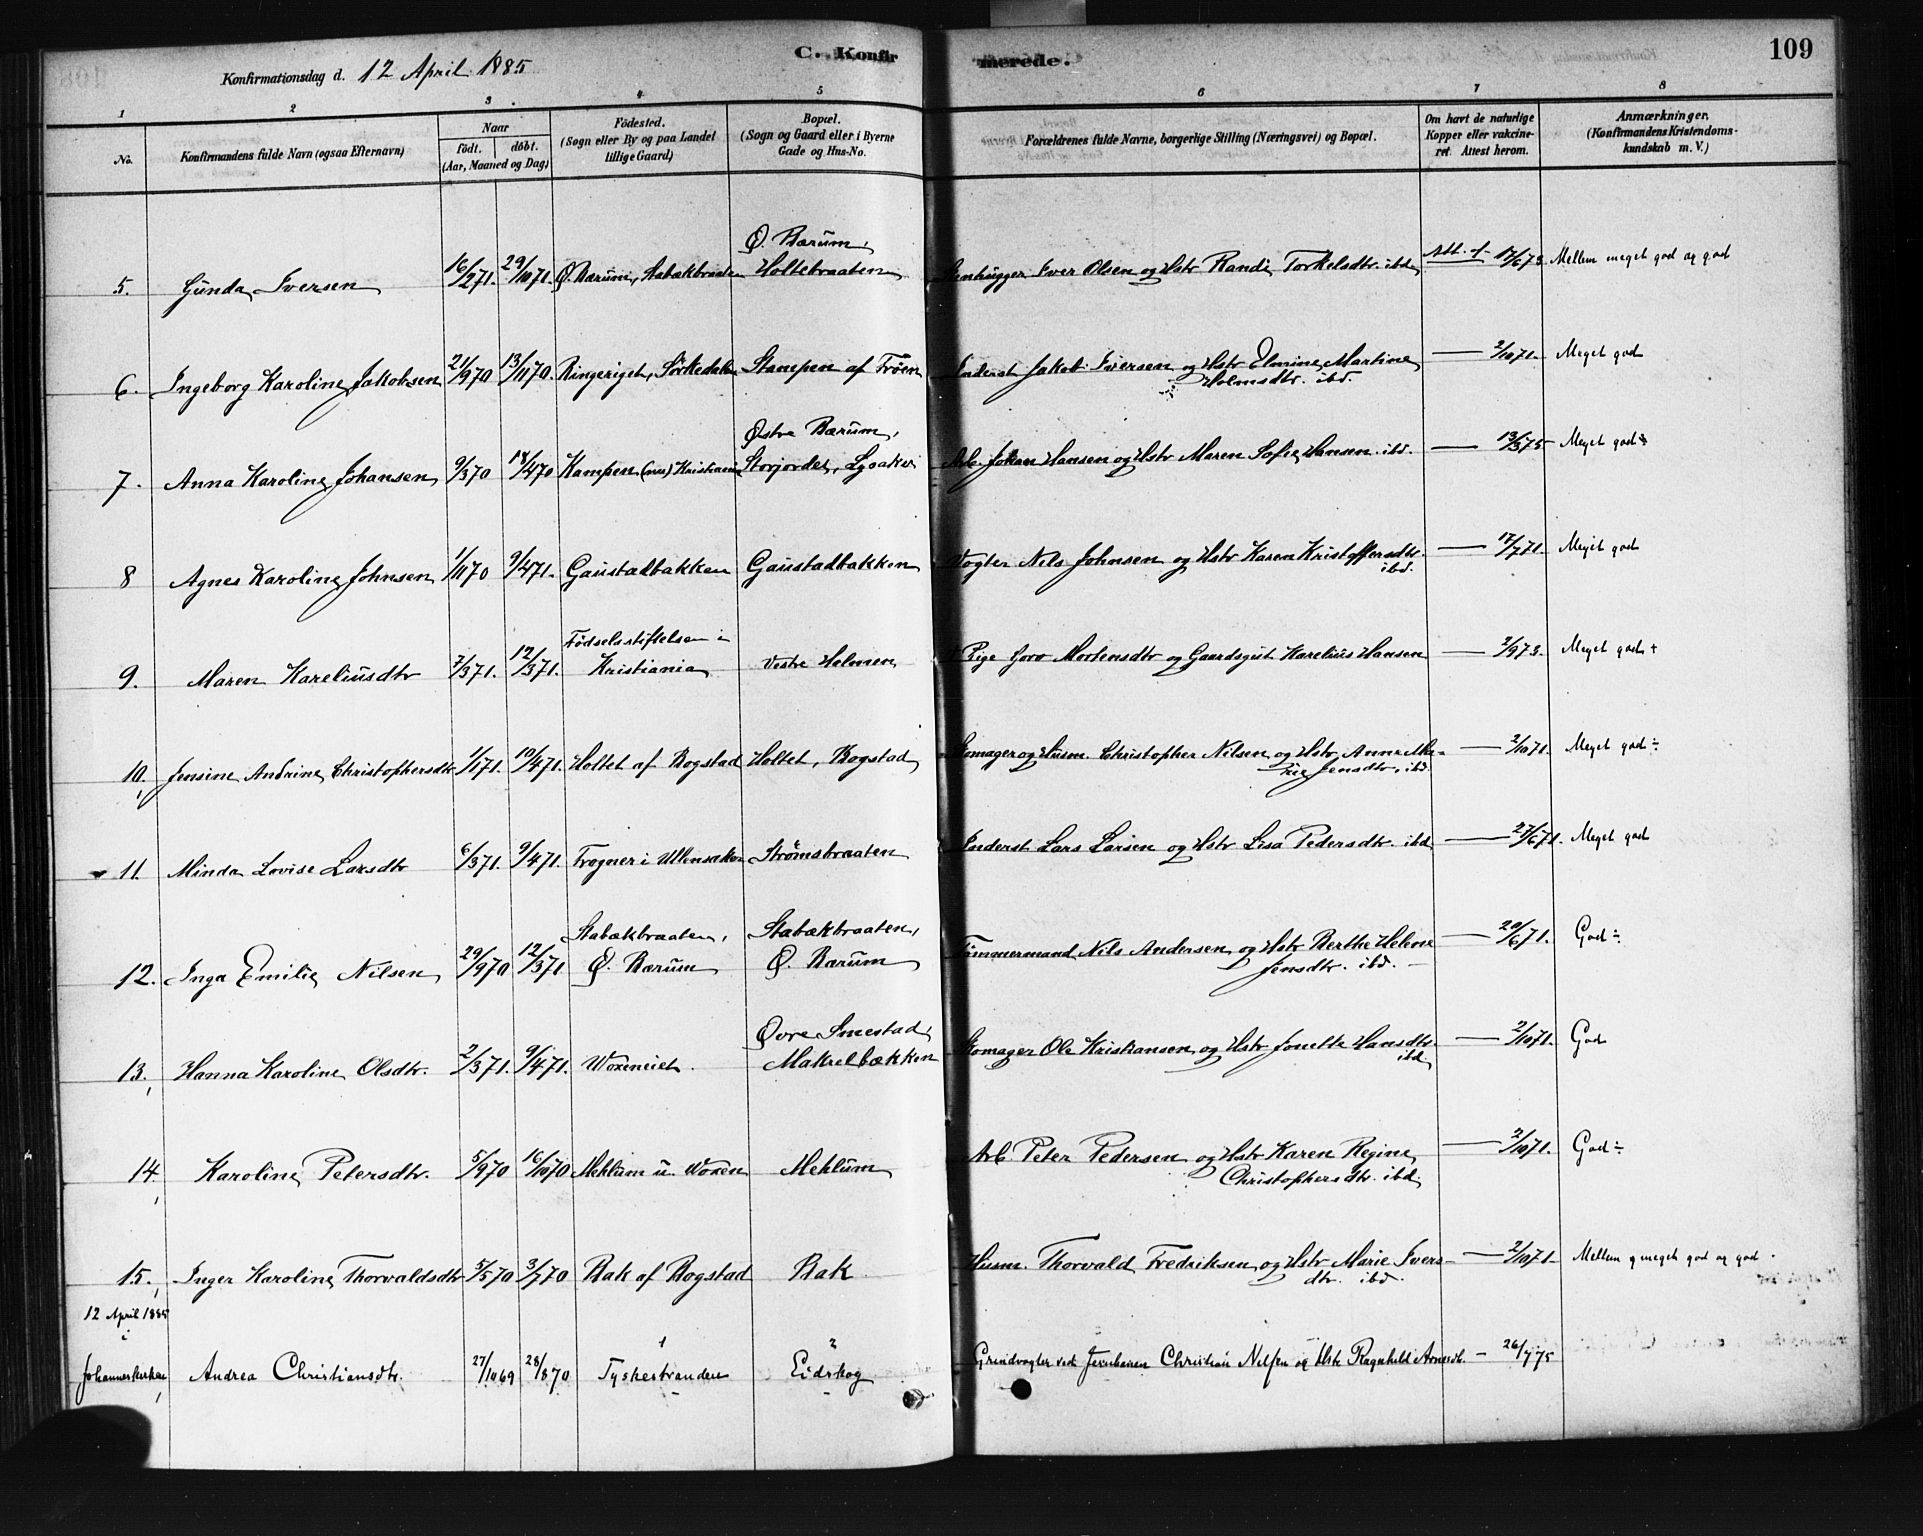 C. Konfirmerede.
109
Konfirmationsdag d. 12 April 1885
1 2 3 4 5 6 7 8
No.
Konfirmandens fulde Navn (ogsaa Efternavn)
Naar
födt. döbt.
(Aar, Maaned og Dag)
Födested.
(Sogn eller By og paa Landet
lillige Gaard)
Bopæl.
(Sogn og Gaard eller i Byerne
Gade og Hus-No.
Forældrenes fulde Navne, borgerlige Stilling (Næringsvei) og Bopæl.
Om havt de naturlige
Kopper eller vakcine-
ret. Attest herom.
Anmærkninger.
(Konfirmandens Kristendoms-
kundskab m. V.)
Ø. Bærum,
5. Gunda Iversen 16/2 71. 29/10 71. Ø. Bærum, Stabækbraaten Holtebraaten Stenhugger Iver Olsen og Hstr Randi Torkelsdtr. ibd. Att. f. 17/6 78 Mellem meget god og god
6. Ingeborg Karoline Jakobsen 21/9 70 13/11 70. Ringeriget, Sörkedalen Stampen af Frøen Inderst Jakob Iversen og Hstr Elmine Martine — 2/10 71. Meget god
Holmsdtr. ibd.
Østre Bærum,
7. Anna Karoline Johansen 9/3 70 18/4 70 Kampen (nu) Kristiania Storjordet, Lysaker Arb. Johan Hansen og Hstr Maren Sofie Hansen ibd. — 13/3 75 Meget god
8 Agnes Karoline Johnsen 1/11 70 9/4 71. Gaustadbakken Gaustadbakken Vogter Nils Johnsen og Hstr Karen Kristoffersdtr. — 17/7 71. Meget god
ibd.
Fødselsstiftelsen i
9. Maren Kareliusdtr 7/3 71. 12/3 71. Kristiania Vestre Holmen Pige Goro Mortensdtr og Gaardsgut Karelius Hansen — 2/9 73. Meget god +
10. Jensine Andrine Christophersdtr 1/1 71. 10/4 71. Holtet af Bogstad Holtet, Bogstad Skomager og Husm. Christopher Nilsen og Hstr Anne Ma- — 2/10 71. Meget god ÷
rie Jensdtr. ibd.
11. Minda Lovise Larsdtr 6/3 71. 9/4 71. Frogner i Ullensaker Strömsbraaten Inderst Lars Larsen og Hstr Lisa Pedersdtr. ibd — 27/6 71. Meget god
Stabækbraaten, Stabækbraaten,
12. Inga Emilie Nilsen 29/9 70 12/3 71 Ø. Bærum Ø. Bærum Tömmermand Nils Andersen og Hstr Berthe Helene — 20/6 71. God ÷
Jensdtr. ibd. —
Øvre Smestad,
13. Hanna Karoline Olsdtr. 2/3 71. 9/4 71. Woxeneiet. Makrelbækken Skomager Ole Kristiansen og Hstr Jonette Hansdtr — 2/10 71. God
ibd
14. Karoline Petersdtr. 5/9 70 16/10 70 Meklum u. Woxen Meklum Arb. Peter Pedersen og Hstr Karen Regine — 2/10 71. God ÷
Christophersdtr. ibd.
15. Inger Karoline Thorvaldsdtr 5/5 70 3/7 70 Bak af Bogstad Bak Husm. Thorvald Fredriksen og Hstr Marie Ivers- — 2/10 71. Mellem meget god og god.
dtr. ibd.
12 April 1885
i
Johanneskirken Andrea Christiansdtr. 27/10 69 28/8 70 Tyskestranden Eidskog Grindvogter ved Jernbanen Christian Nilsen og Hstr Ragnhild Arnesdtr. — 26/7 75